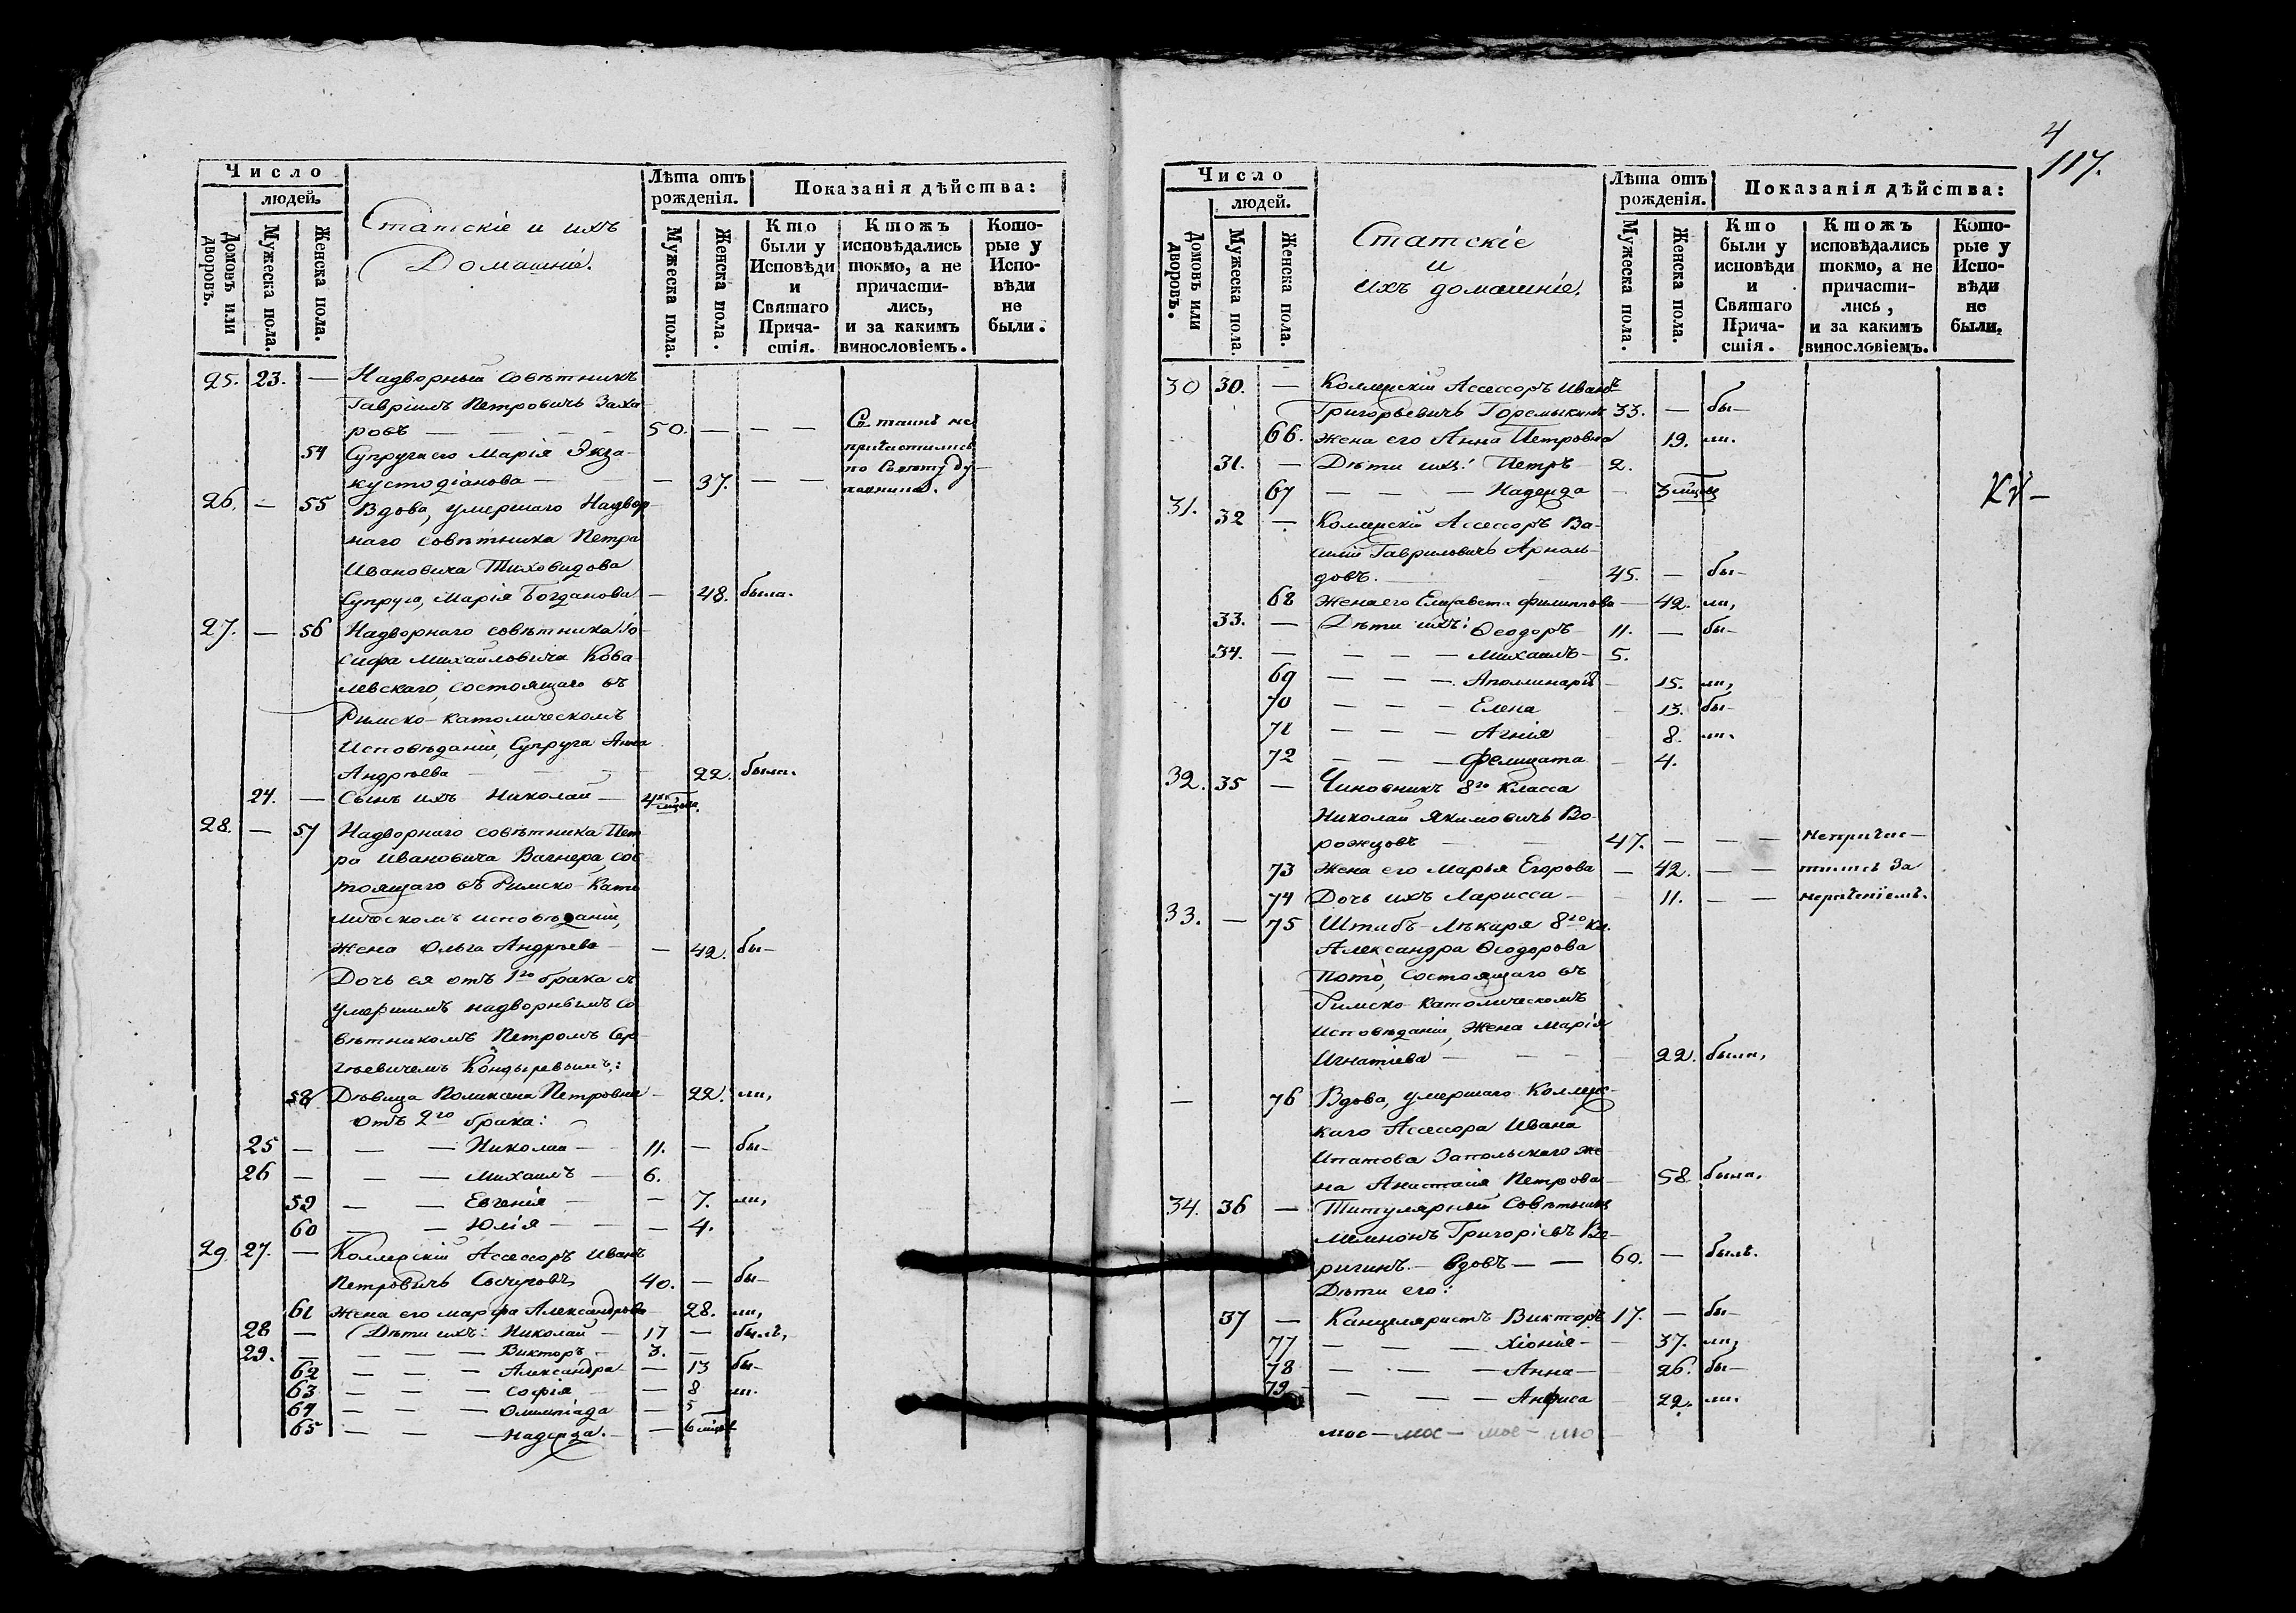 Число
людей.
Домовъ или дворовъ.
Мужеска пола.
Женска пола.
Статскіе и ихъ
Домашніе.
Лѣта отъ
рожденія.
Мужеска пола.
Женска пола.
Показанія дѣйства:
Кто
были у
Исповѣди
и
Святаго
Прича-
стія.
Ктожъ
исповѣдались
токмо, а не
причасти-
лись,
и за какимъ
винословіемъ.
Кото-
рые у
Испо-
вѣди
не
были.
25. 23. — Надворный Совѣтникъ
Гавріилъ Петровичь Заха-
ровъ — 50. — — — не
54 Супруга его Марія Экза-
кустодіанова — — 37. — — по совѣту ду-
26. — 55 Вдова, умершаго Надвор-
наго совѣтника Петра
Ивановича Тиховидова
Супруга, Марія Богданова — 48. была.
27. — 56 Надворнаго совѣтника Іо-
сифа Михайловича Кова-
левскаго, состоящаго въ
Римско-католическомъ
Исповѣданіи, Супруга Анна
Андреева — 22. была.
24. — Сынъ ихъ Николай — 4
28. — 57 Надворнаго совѣтника Пет-
ра Ивановича Вагнера, сос-
тоящаго въ Римско-Като-
лическомъ исповѣданіи,
жена Ольга Андреева — — 42. бы—
Дочь ея отъ 1го брака съ
умершимъ надворнымъ Со-
вѣтникомъ Петромъ Сер-
гѣевичемъ Кондыревымъ:
58 Дѣвица Поликсена Петровна — 22. ли,
Отъ 2го брака:
25 — — — Николай — 11. — бы—
26 — — — Михаилъ — 6.
59 — — Евгенія — — 7. ли,
60 — — Юлія — — 4.
29. 27. — Коллежскій Ассессоръ Иванъ
Петровичь 40. — бы—
61 Жена его Марфа Александрова 28. ли,
28 — Дѣти ихъ: Николай — 17 — былъ,
29. — — — — Викторъ — 3. —
62 — — — Александра — — 13 бы—
63 — — — Софія — — 8 ли.
64 — — — Олимпіада — 5 —
65 — — — Надежда. — — 6 мцов
4
117.
Число
людей.
Домовъ или дворовъ.
Мужеска пола.
Женска пола.
Статскіе
и
ихъ домашніе.
Лѣта отъ
рожденія.
Мужеска пола.
Женска пола.
Показанія дѣйства:
Кто
были у
исповѣди
и
Святаго
Прича-
стія.
Ктожъ
исповѣдались
токмо, а не
причасти-
лись,
и за какимъ
винословіемъ.
Кото-
рые у
Испо-
вѣди
не
были.
30 30. — Коллежскій Ассессоръ Иванъ
Григорьевичь Горемыкинъ 33. — бы—
66. жена его Анна Петровна 19. ли.
31. — Дѣти ихъ: Петръ — 2.
67 — — — Надежда — 3 мцов
31. 32 — Коллежскій Ассессоръ Ва-
силій Гавриловичь Арноль-
довъ. — 45. — бы—
68 Жена его Елизавета Филиппова — 42. ли,
33. — Дѣти ихъ: Ѳеодоръ — 11. — бы—
34. — — — — Михаилъ — 5.
69 — — — Аполлинарія — 15. ли,
70 — — — Елена — 13. бы—
71 — — — Агнія — 8. ли.
72 — — — Фелицата — 4.
32. 35 — Чиновникъ 8го Класса
Николай Якимовичь Во-
рожцовъ — — 47. — — — Непричас—
73 Жена его Марья Егорова — 42. — — тились За
74 Дочь ихъ Ларисса — — 11. — —
33. — 75 Штабъ-Лѣкаря 8го Кл.
Александра Ѳеодорова
Пото, состоящаго въ
Римско-католическомъ
исповѣданіи, Жена Марія
Игнатіева — — — 22. была,
— 76 Вдова, умершаго Коллежс-
каго Ассессора Ивана
Ипатова Запольскаго же-
на Анастасія Петрова — 58. была,
34. 36 — Титулярный Совѣтникъ
Мемнонъ Григоріевъ
Вдовъ — — 60. — былъ.
Дѣти его:
37 — Канцеляристъ Викторъ 17. — бы—
77 — — — Хіонія — — 37. ли,
78 — — — Анна — 26. бы—
79 — — — Анфиса — 22. ли.